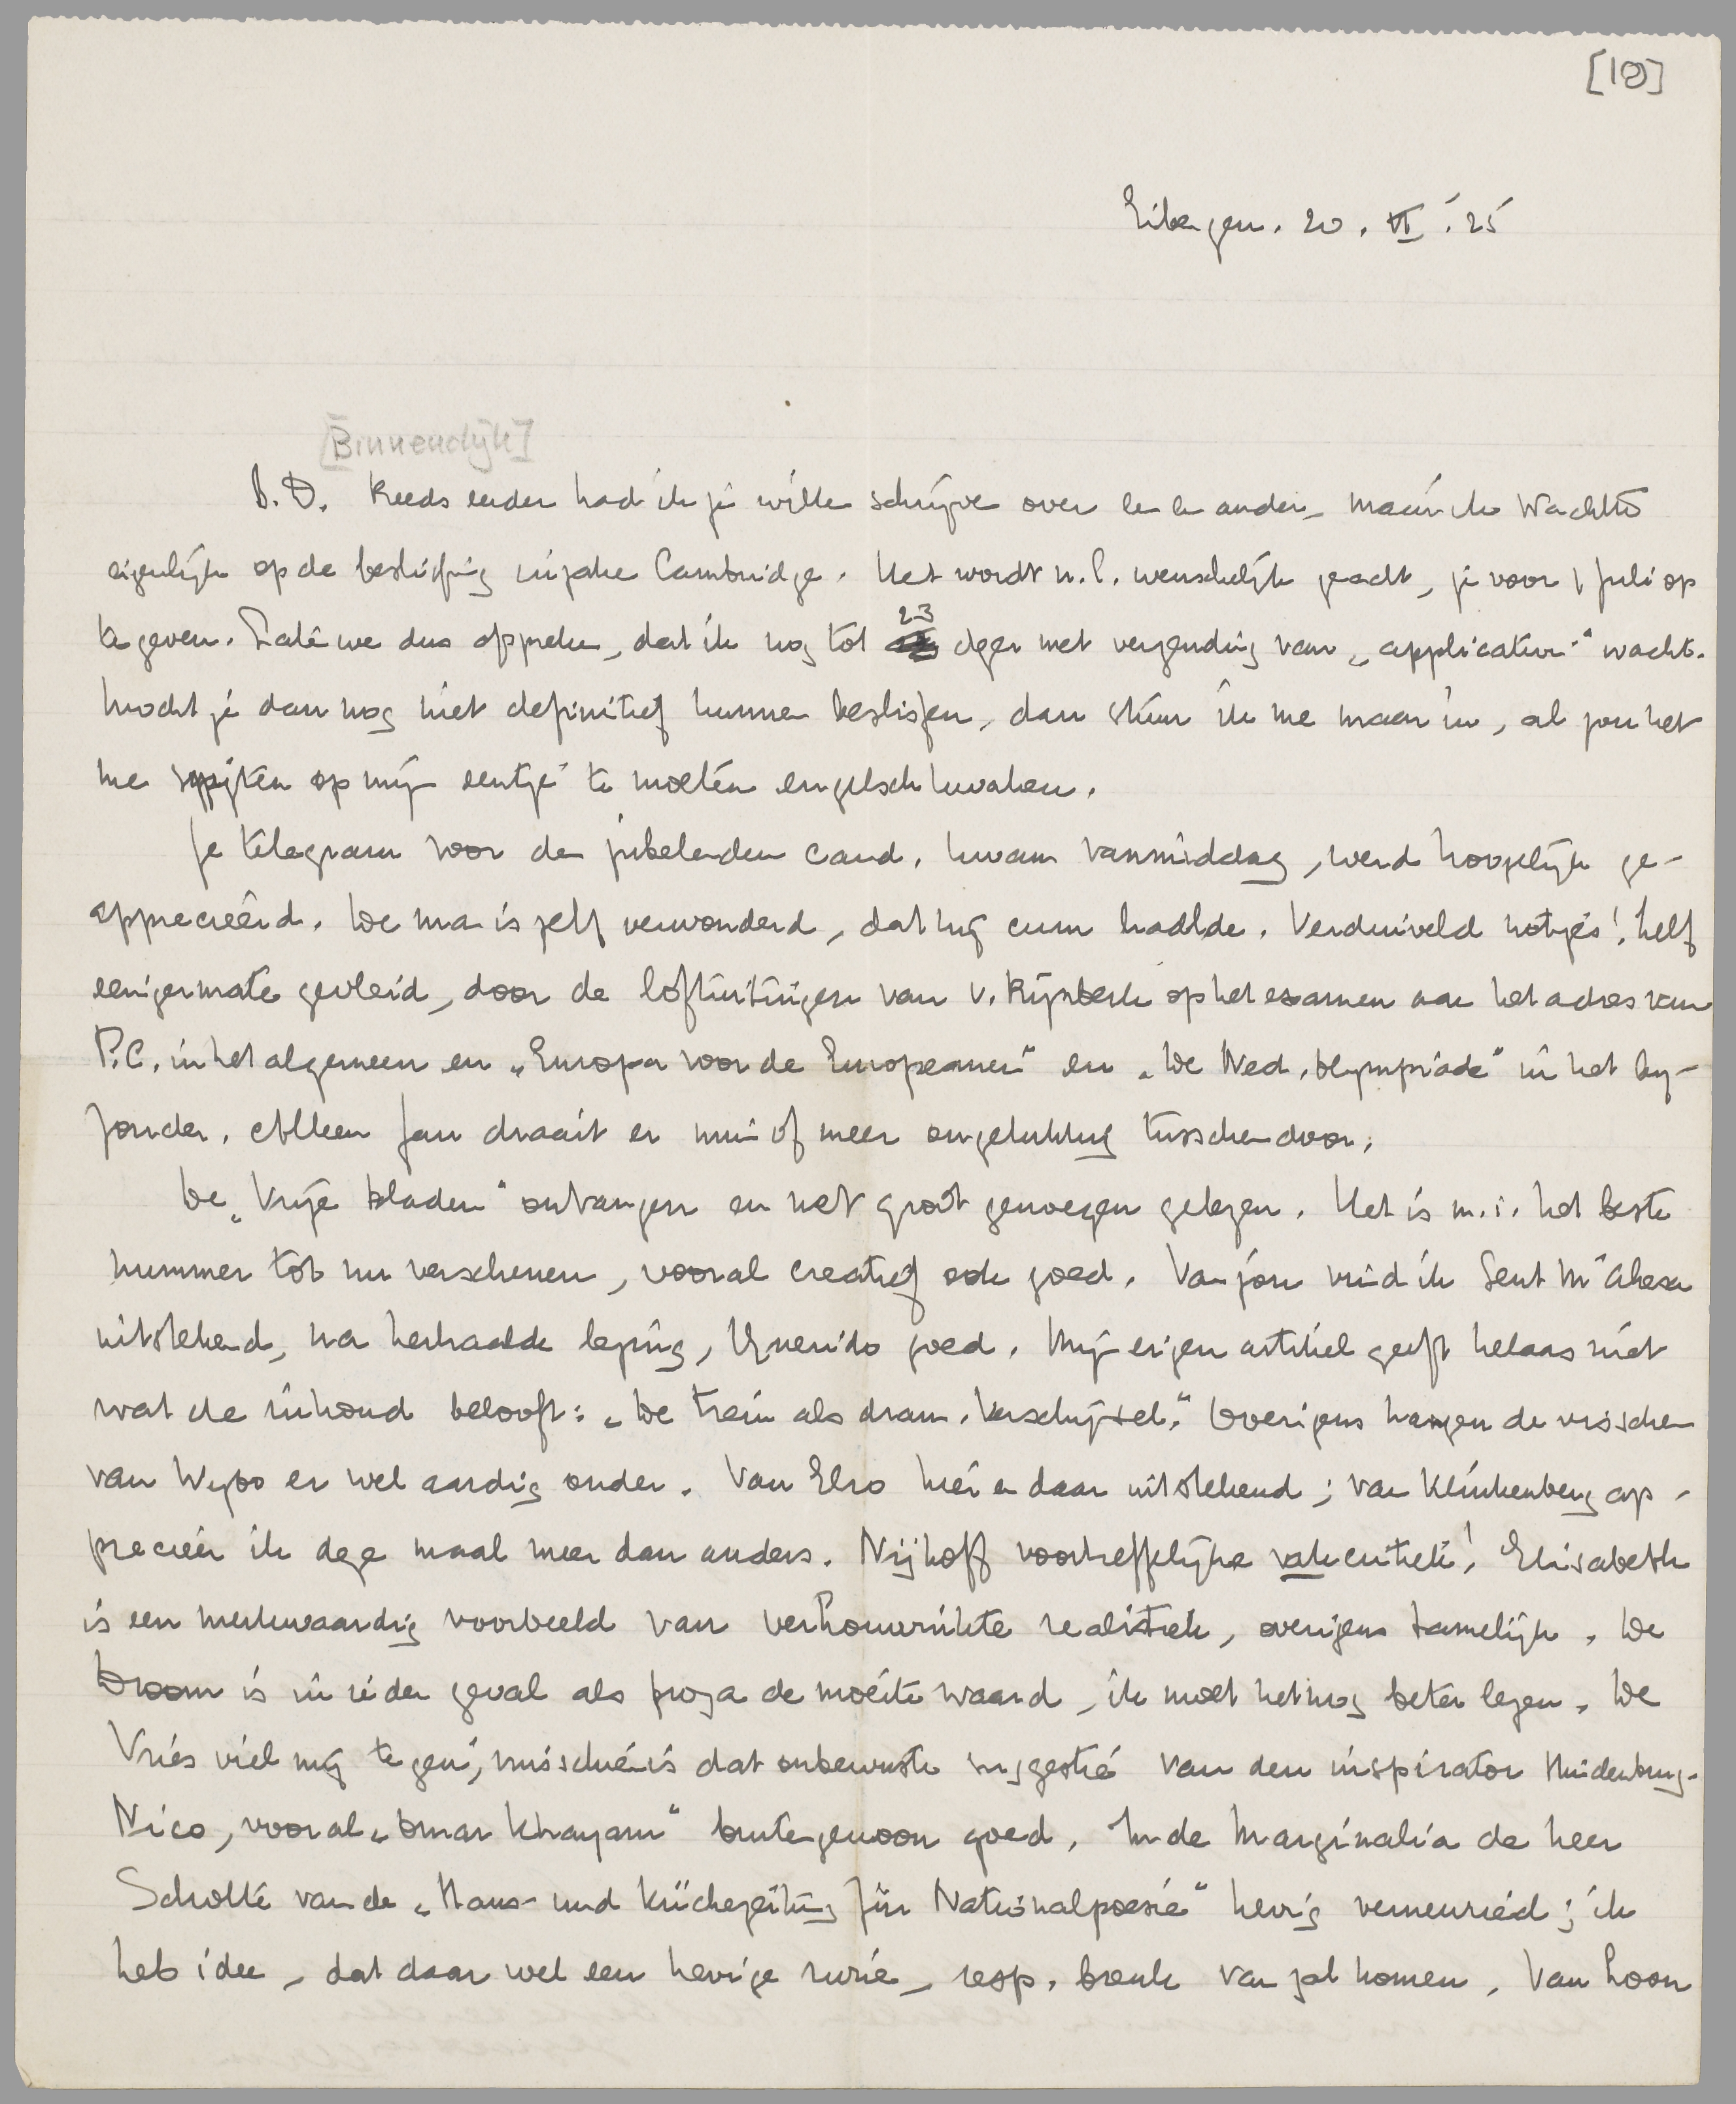 [10]
Eibergen. 20. VI. '25
[Binnendijk]
B.D. Reeds eerder had ik je wille schrijve over een en ander, maar ik wachtte
eigenlijk op de beslissing inzake Cambridge. Het wordt n.l. wenschelijk geacht, je voor 1 Juli op
te geven. Late we dus afspreken, dat ik nog tot 23 dezer met verzending van „application" wacht.
Mocht je dan nog niet definitief kunnen beslissen, dan stuur ik me maar in, al zou het
me spijten op mijn eentje te moeten engelsch kwaken.
Je telegram voor den jubelenden cand. kwam vanmiddag, werd hoogelijk ge-
apprecieerd. De man is zelf verwonderd, dat hij cum haalde. Verduiveld netjes! Zelf
eenigermate gevleid, door de loftuitingen van v. Rijnberk op het examen aan het adres van
P.C. in het algemeen en „Europa voor de Europeanen" en „De Ned. Olympiade" in het bij-
zonder. Alleen Jan draait er min of meer ongelukkig tusschendoor.
De „Vrije Bladen" ontvangen en met groot genoegen gelezen. Het is m.i. het beste
nummer tot nu verschenen, vooral creatief ook goed. Van jou vind ik Sent M'Ahesa
uitstekend, na herhaalde lezing, Querido goed. Mijn eigen artikel geeft helaas niet
wat de inhoud belooft: „De trein als dram. verschijnsel." Overigens hangen de visschen
van Wybo er wel aardig onder. Van Elro hier en daar uitstekend; van Klinkenberg ap-
precieer ik deze maal meer dan anders. Nijhoff voortreffelijke vakcritiek! Elisabeth
is een merkwaardig voorbeeld van verhouwrikte realistiek, overigens tamelijk. De
Droom is in ieder geval als proza de moeite waard, ik moet het nog beter lezen. De
Vries viel mij tegen; misschien is dat onbewuste suggestie van den inspirator Muidenburg.
Nico, vooral „Omar Khayam" buitengewoon goed. In de Marginalia de heer
Scholte van de „Haus- und Küchezeitung für Nationalpoesie" hevig verneuried; ik
heb idee, dat daar wel een hevige ruzie, resp. breuk van zal komen. Van Loon